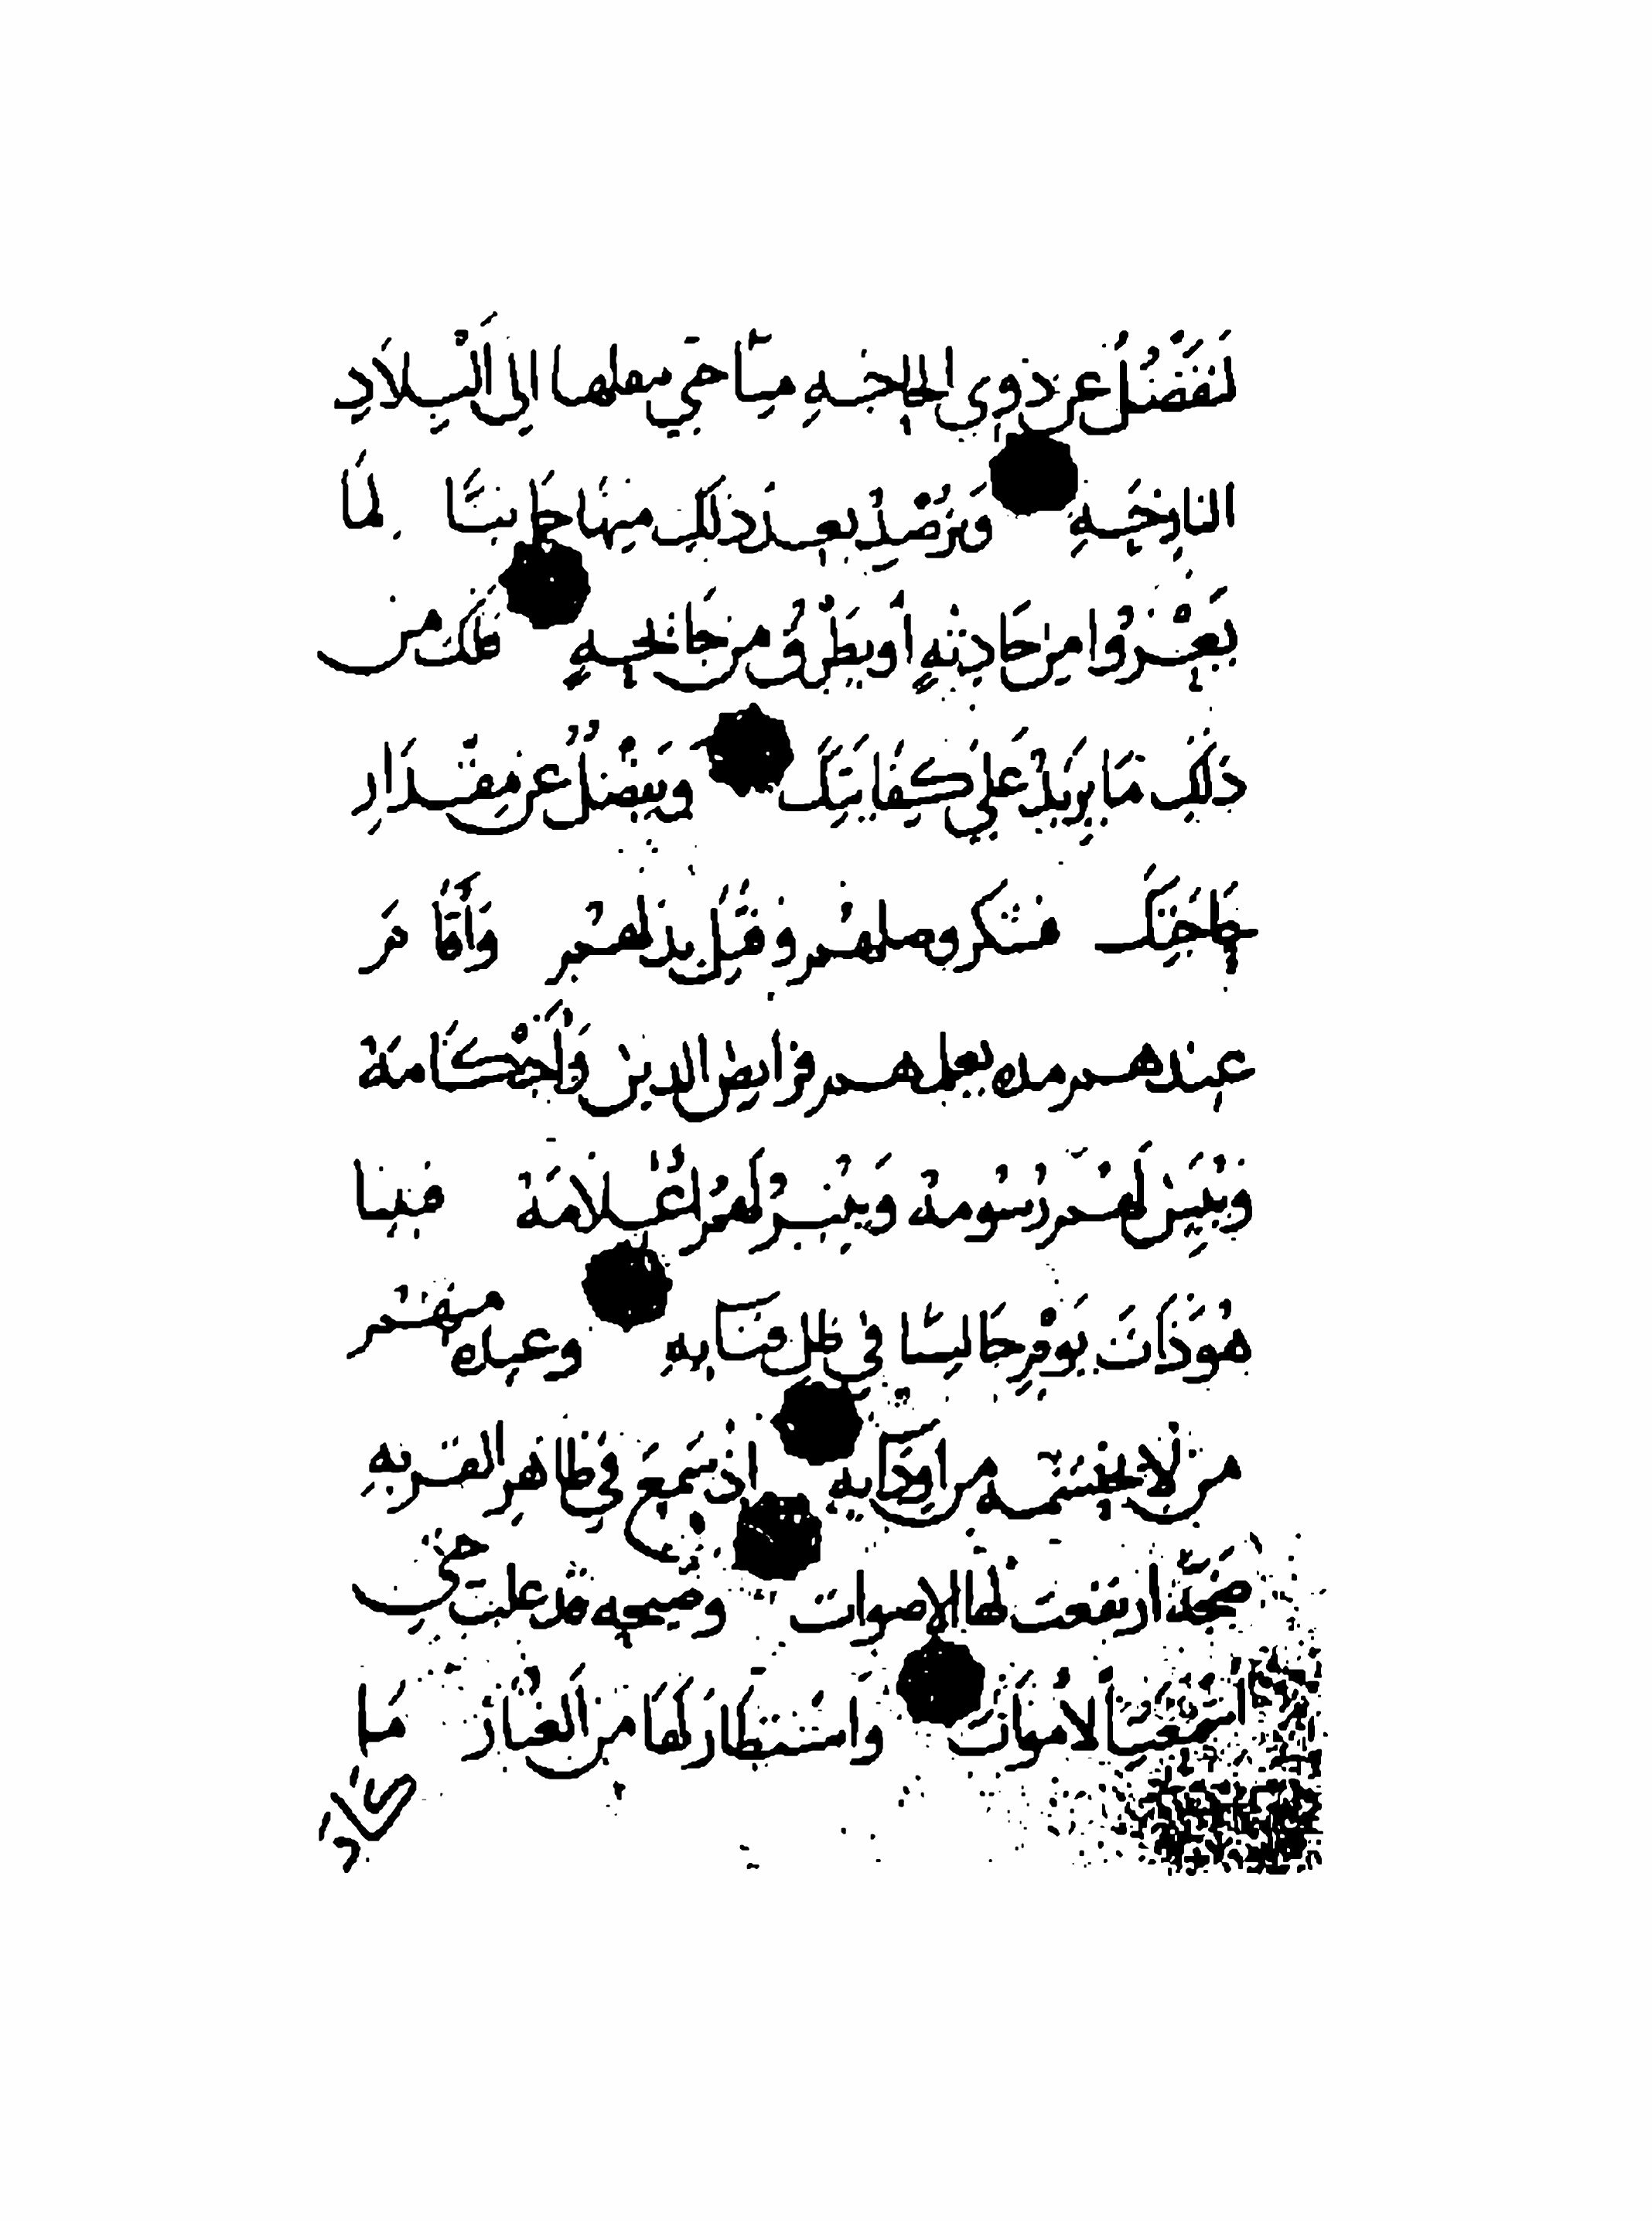 لَفَضُلَ عن ذوى الحاجةِ مِنّا حتى ننقلها الى اَلْبِلَادِ
النازِحَةِ وَنَرْصُدِ بعد ذلك مِنهَا جَانبًا لِمَا
يَعْرُوا مِنْ حَادِثَةٍ أو يَطْرُقُ من جَائِحَةٍ فلك من
ذَلِكَ مَا يَزِيدُ عَلى كِفَايَتِكَ ويَفْضُلُ عن مِقْدَارِ
حَاجَتِكَ فشكر وصلهُم وقَبِلَ بذلهم وَأَقَامَ
عِندهم مده يعلمهم فرايض الدين وَأَحْكَامَهُ
ويُبَيِّنُ لَهُم رُسُومهُ وَيُنِيرُ لَهُمْ اَعْلَامَهُ فبينا
هُوَ ذَاتَ يَوْمٍ جَالِسًا فى ظلِ فنَايهِ وعنده منهُم
من لَا يحتشمه من اوِدَّايهِ اذ سَمِعَ فِي ظاهرِ القريهِ
ضجّة ارتفعت لها الاصوات وصيحه قد علت حتى
اسْمَعَتِ اَلامْوَاتَ وَاسْتطَارَ لَهَا من اَلغُبَارِ مَا
كَادَ